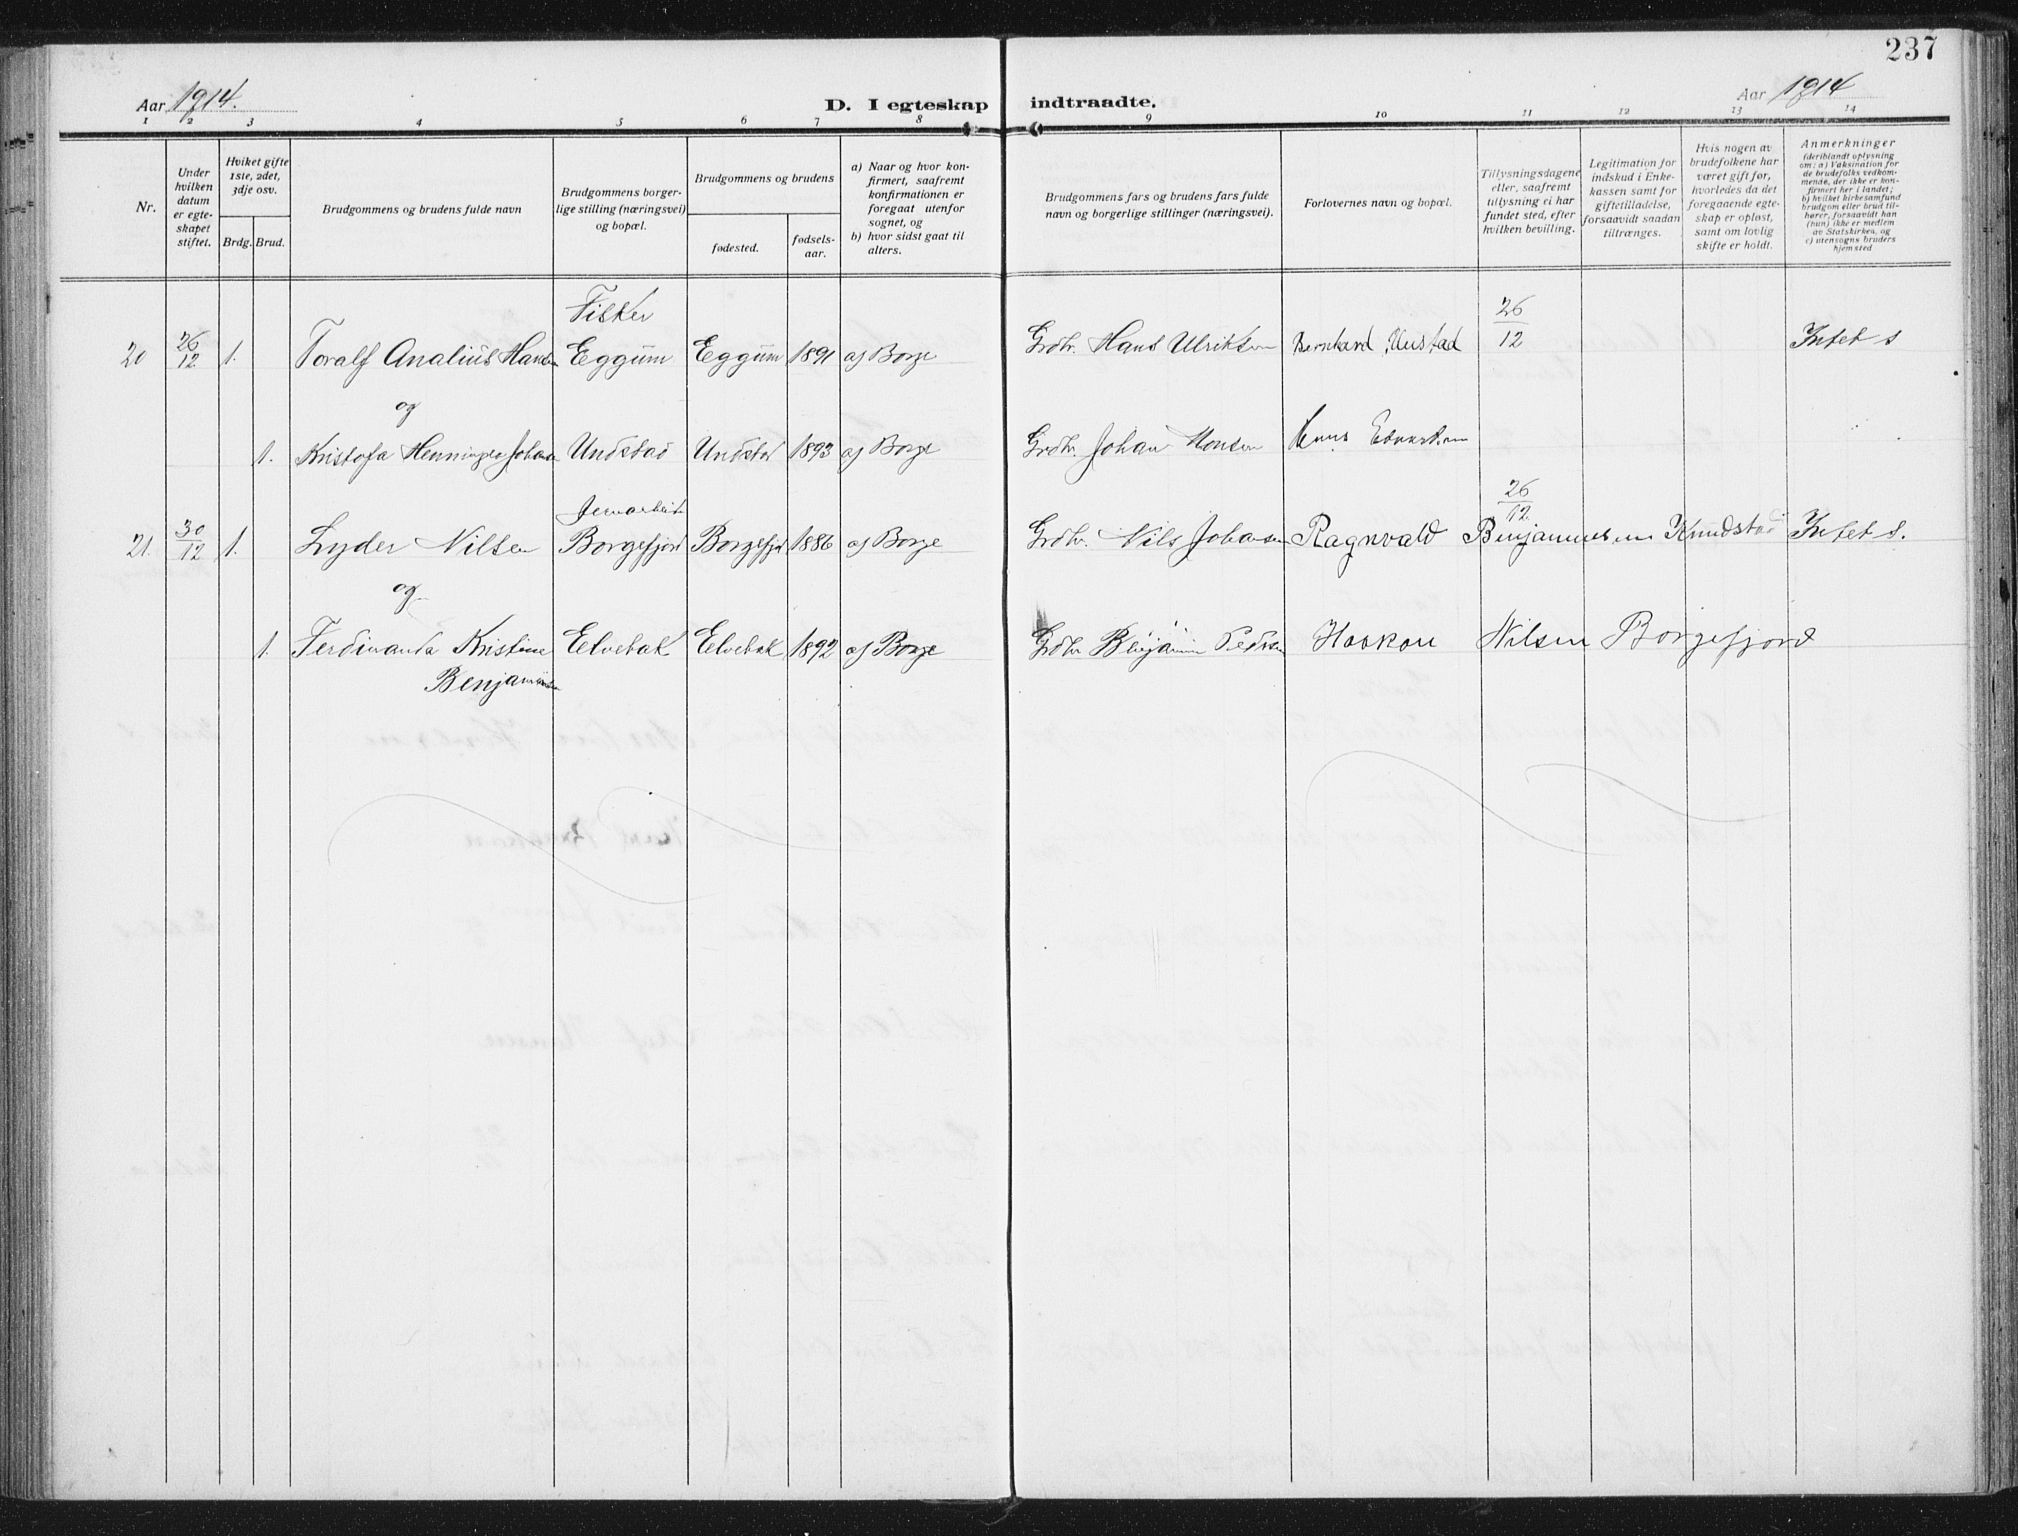 237
Aar 1914. D. I egteskap indtraadte. Aar 1914
1 2 3 4 5 6 7 8 9 10 11 12 13 14
Nr.
Under
hvilken
datum
er egte-
skapet
stiftet.
Hviket gifte
1ste, 2det,
3dje osv.
Brdg. Brud.
Brudgommens og brudens fulde navn
Brudgommens borger-
lige stilling (næringsvei)
og bopæl.
Brudgommens og brudens
fødested.
fødsels-
aar.
a) Naar og hvor kon-
firmert, saafremt
konfirmationen er
foregaat utenfor
sognet, og
b) hvor sidst gaat til
alters.
Brudgommens fars og brudens fars fulde
navn og borgerlige stillinger (næringsvei).
Forlovernes navn og bopæl.
Tillysningsdagene
eller, saafremt
tillysning ei har
fundet sted, efter
hvilken bevilling.
Legitimation for
indskud i Enke-
kassen samt for
giftetilladelse,
forsaavidt saadan
tiltrænges.
Hvis nogen av
brudefolkene har
været gift før,
hvorledes da det
foregaaende egte-
skap er opløst,
samt om lovlig
skifte er holdt.
Anmerkninger
(deriblandt oplysning
om: a) Vaksination for
de brudefolks vedkom-
mende, der ikke er kon-
firmert her i landet;
b) hvilket kirkesamfund
brudgom eller brud til-
hører, forsaavidt han
(hun) ikke er medlem
av Statskirken, og
c) utensogns bruders
hjemsted
Fisker 26
20 26/12 1. Toralf Analius Hansen Eggum Eggum 1891 af Borge Grdbr. Hans Ulriksen Bernhard 12 Intet s
og
1. Kristofa Henningea Johansen Undstad Undstad 1893 af Borge Grdbr. Johan Monsen
26
12
21. 30/12 1. Lyder Nilsen Borgefjord Borgefjord 1886 af Borge Grdbr. Nils Johansen Ragnvald Benjaminsen Knudstad Intet s.
og
1. Ferdinanda Kristine Elvebak Elvebak 1892 af Borge Grdbr Benjamin Pedersen Haakon Nilsen Borgefjord
Benjaminsen